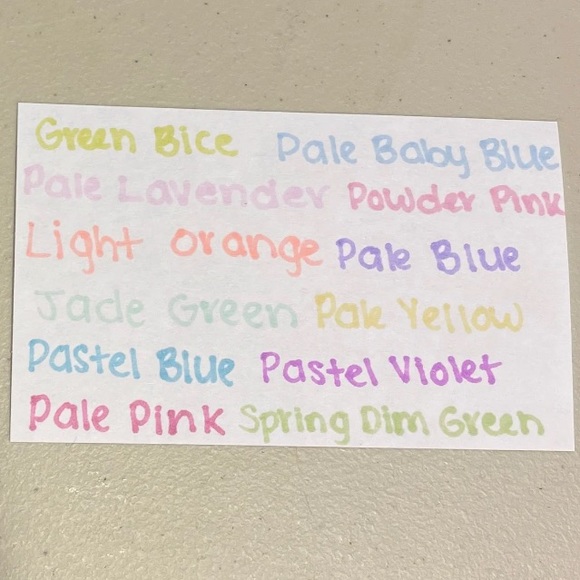 Green Bice Pale Baby Blue
Pale Lavender Powder Pink
Light orange Pale Blue
Jade Green Pale Yellow
Pastel Blue Pastel Violet
Pale Pink Spring Dim Green